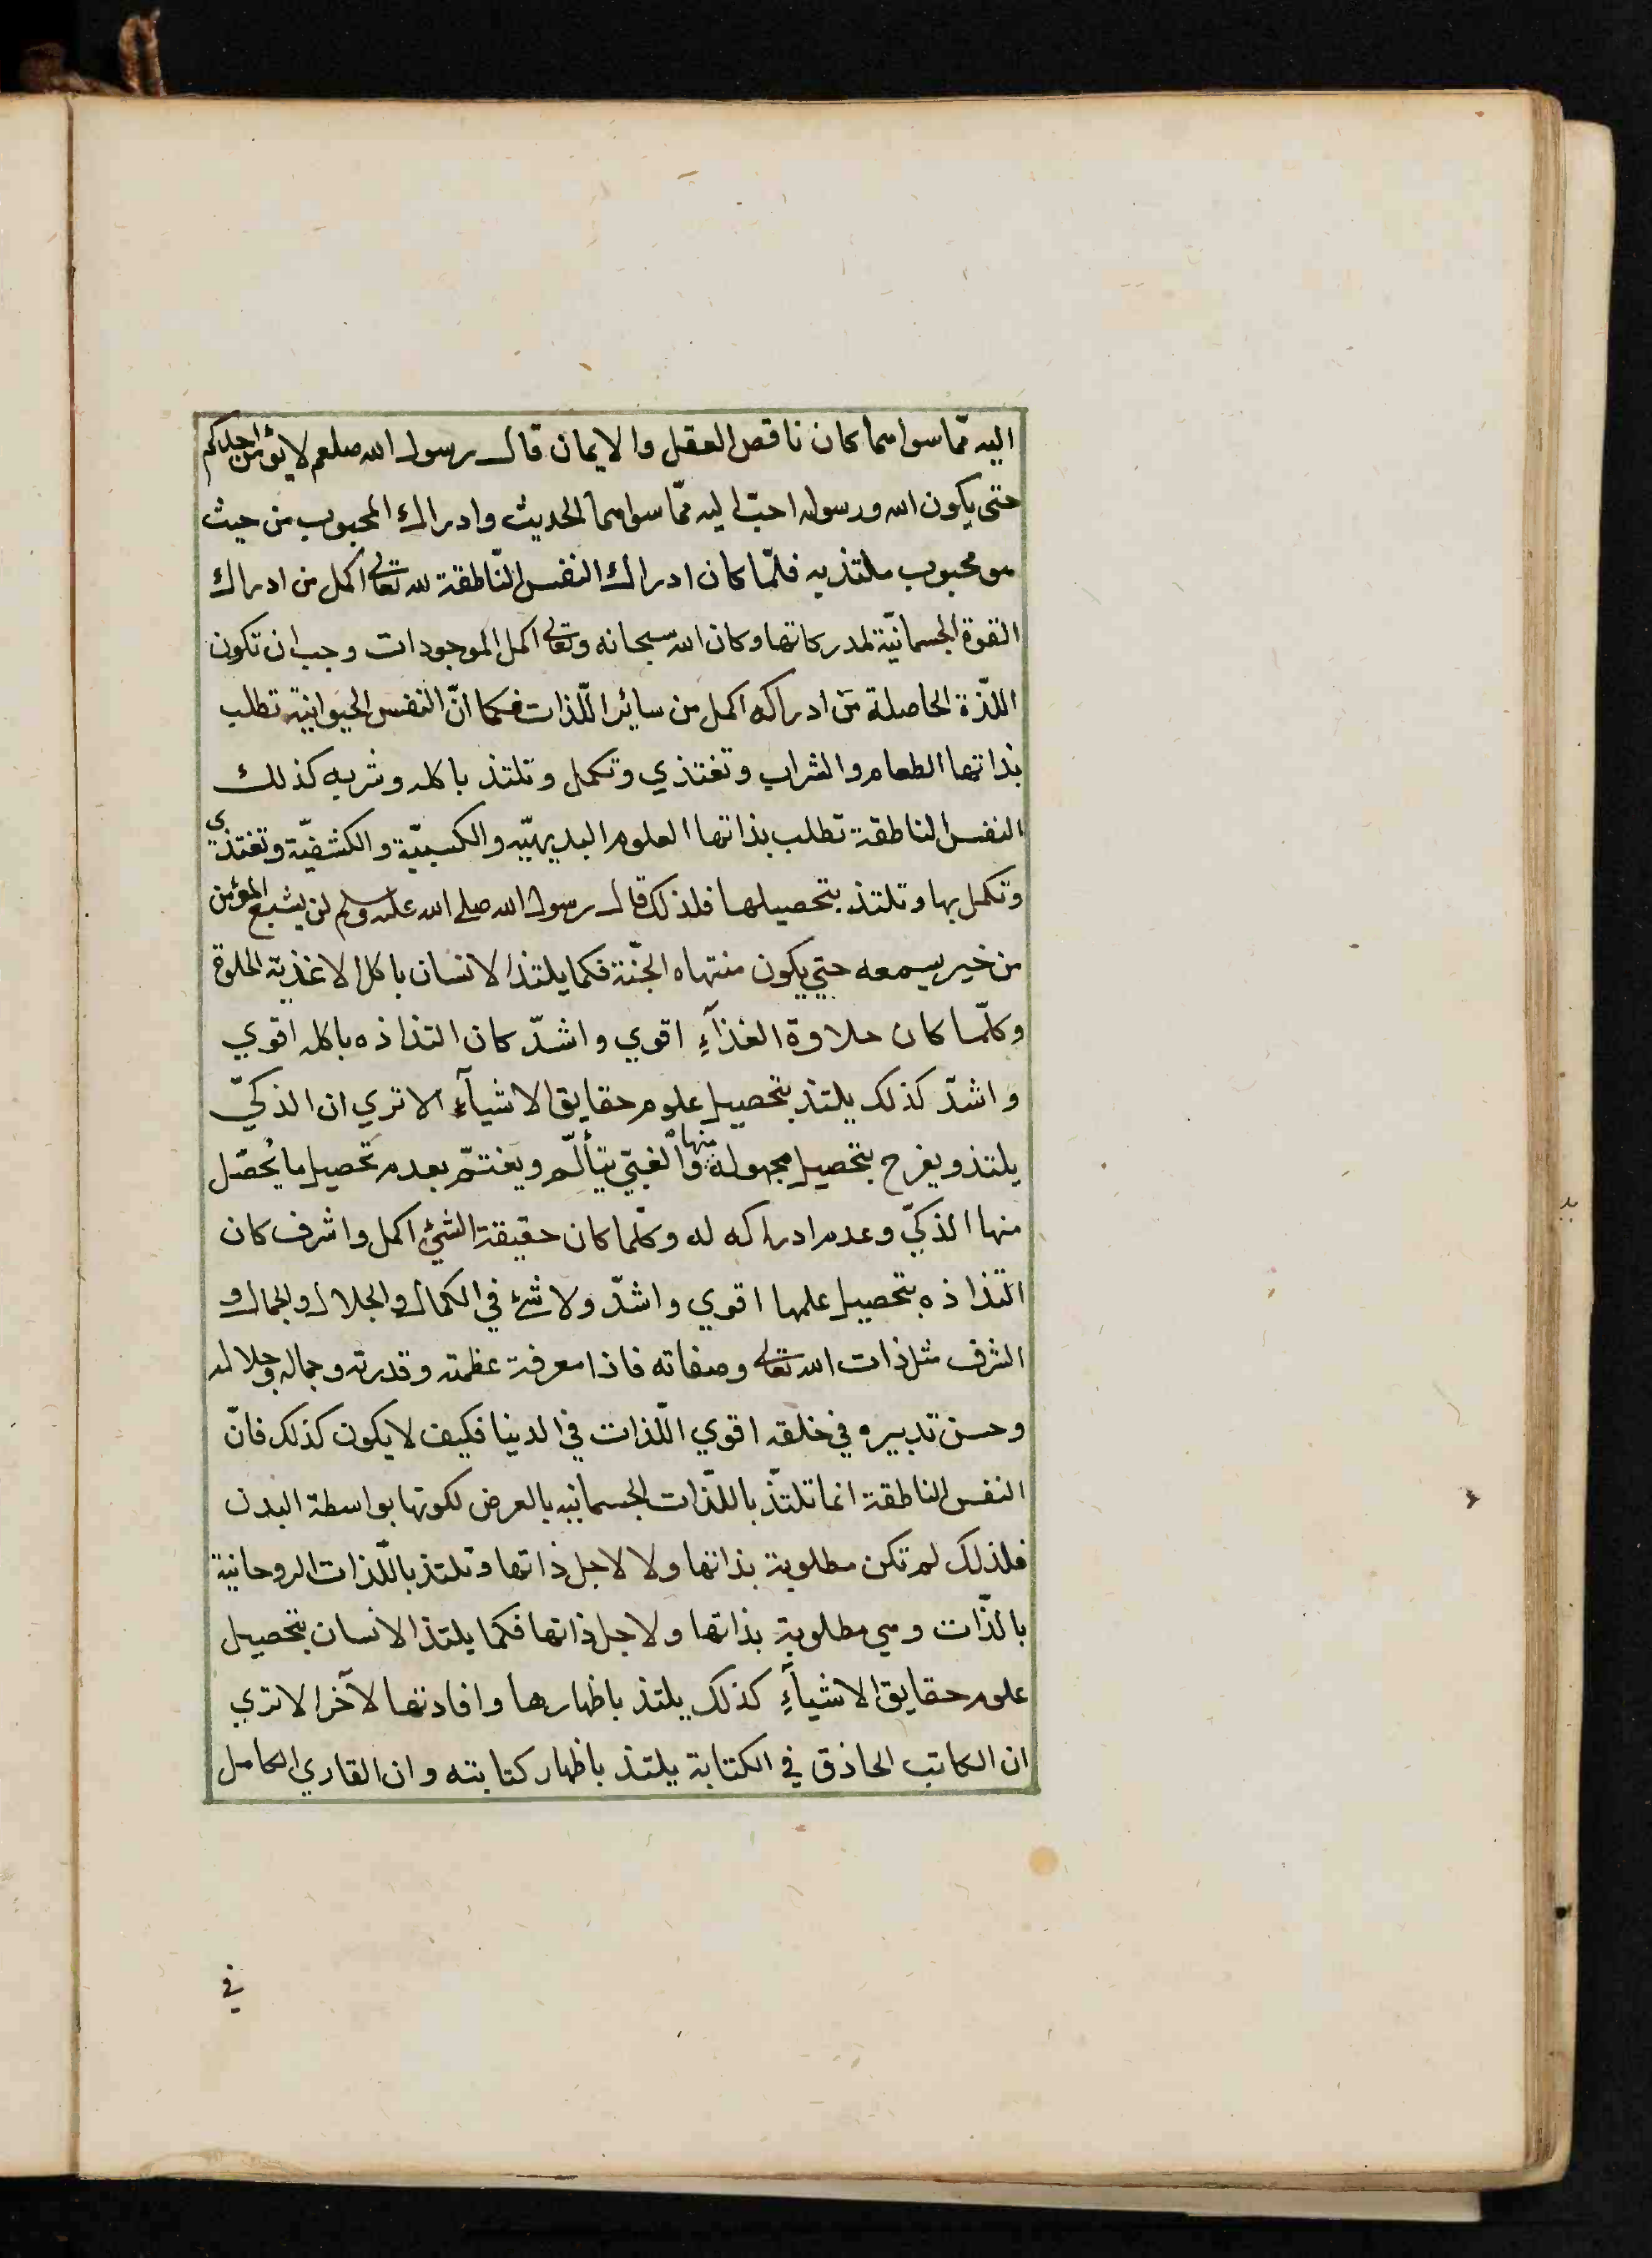 اليه ممّا سواهما كان ناقص العقل والايمان قال رسول الله صلعم لا يؤمن احدكم
حتى يكون الله ورسوله احبّ اليه ممّا سواهما الحديث وادراك المحبوب من حيث
هو محبوب ملتذ به فلمّا كان ادراك النفس النّاطقة لله تعالى اكمل من ادراك
القوة الجسمانيّة لمدركاتها وكان الله سبحانه وتعالى اكمل الموجودات وجب ان تكون
اللّذة الحاصلة من ادراكه اكمل من سائر اللّذات فكما انّ النفس الحيوانية تطلب
بذاتها الطعام والشراب وتغتذي وتكمل وتلتذ باكله وشربه كذلك
النفس الناطقة تطلب بذاتها العلوم البديهيّه والكسبيّة والكشفيّة وتغتذي
وتكمل بها وتلتذ بتحصيلها فلذلك قال رسول الله صلى الله عليه وسلم لن يشبع المؤمن
من خير يسمعه حتي يكون منتهاه الجنّة فكما يلتذ الانسان باكل الاغذية الحلوة
وكلّما كان حلاوة الغذآءِ اقوي واشدّ كان التذاذه باكله اقوي
واشدّ كذلك يلتذ بتحصيل علوم حقايق الاشيآءِ الا تري ان الذكيّ
يلتذ ويفرح بتحصيل مجهوله منها والغبيّ يتألّم ويغتمّ بعدم تحصيل ما يُحصّل
منها الذكيّ وعدم ادراكه له وكلّما كان حقيقة الشيْ اكمل واشرف كان
التذاذه بتحصيل علمها اقوي واشدّ ولا شئ في الكمال والجلال والجمال و
الشرف مثل ذات الله تعالى وصفاته فاذا معرفة عظمته وقدرته وجماله وجلاله
وحسن تدبيره في خلقه اقوي اللّذات في الدنيا فكيف لا يكون كذلك فانّ
النفس الناطقة انما تلتذّ باللّذات الجسمانيه بالعرض لكونها بواسطة البدن
فلذلك لم تكن مطلوبة بذاتها ولا لاجل ذاتها وتلتذ باللّذات الروحانية
بالذّات وهي مطلوبة بذاتها ولاجل ذاتها فكما يلتذ الانسان بتحصيل
علوم حقايق الاشيآءِ كذلك يلتذ باظهارها وافادتها لآخر الا تري
ان الكاتب الحاذق في الكتابة يلتذ باظهار كتابته وان القاري الكامل
في